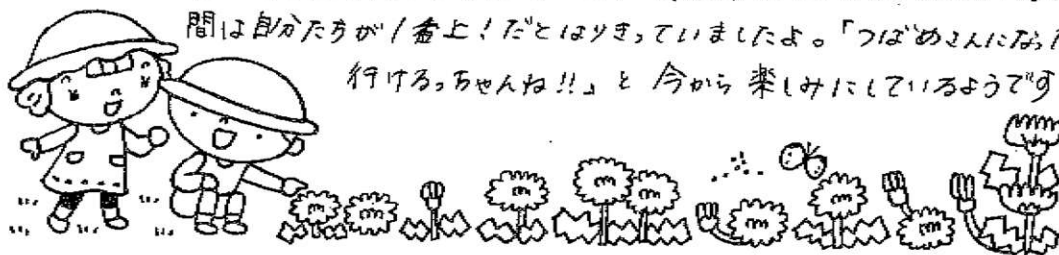 間は自分たちが1番上！だとはりきっていましたよ。「つばめさんになっ
行けるっちゃんね!!」と 今から 楽しみにしているようです